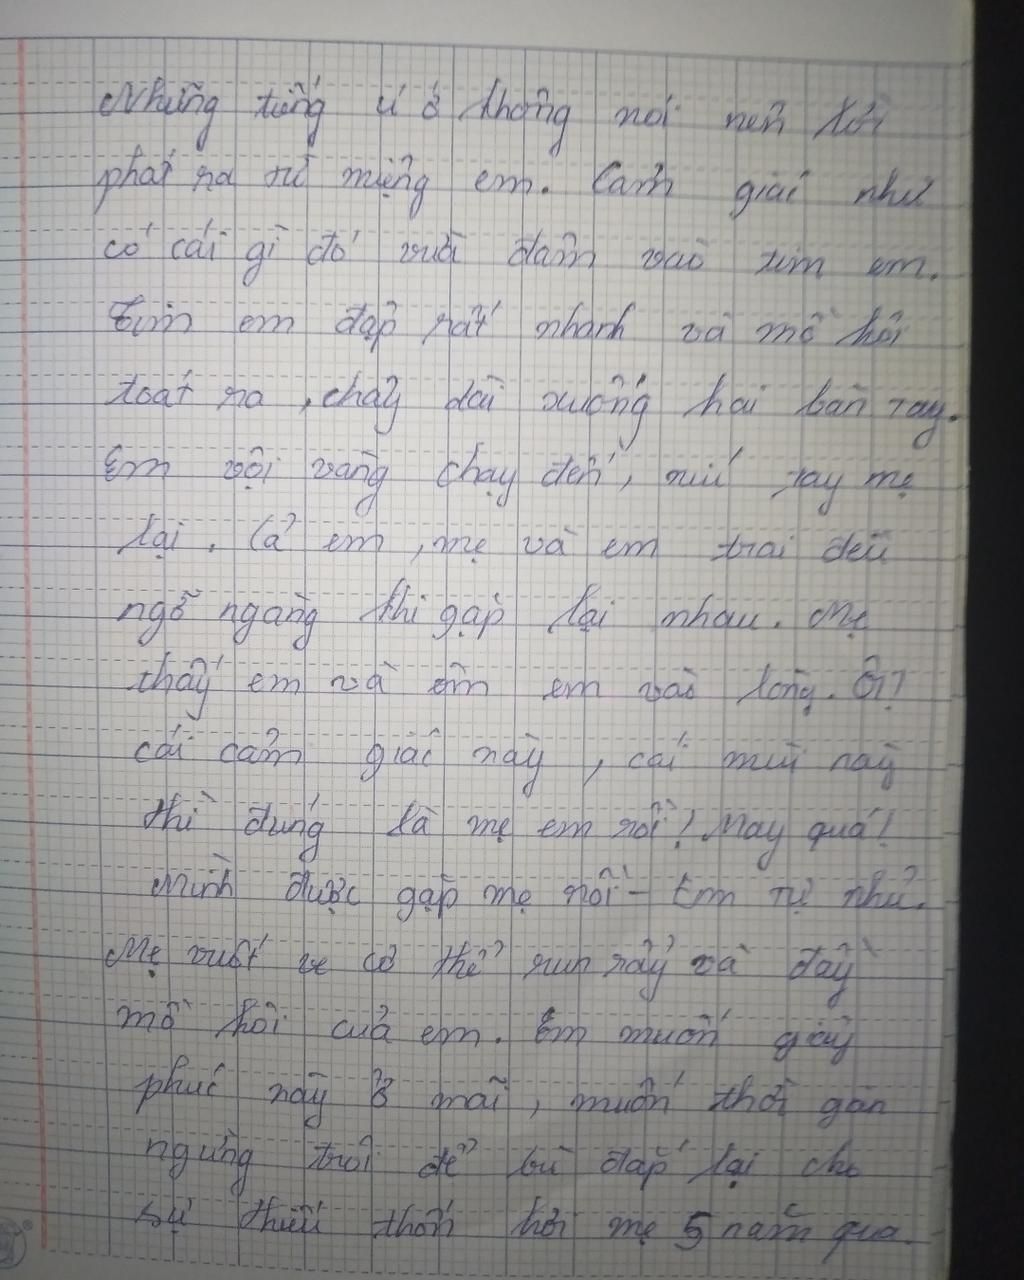 Những tiếng ú ớ không nói nên lời
phát ra từ miệng em. Cảm giác như
có cái gì đó vừa đâm vào tim em.
Tim em đập rất nhanh và mồ hôi
toát ra, chảy dài xuống hai bàn tay.
Em vội vàng chạy đến, níu tay mẹ
lại. Cả em, mẹ và em trai đều
ngỡ ngàng khi gặp lại nhau. Mẹ
thấy em và ôm em vào lòng. Ôi!
cái cảm giác này, cái mùi này
thì đúng là mẹ em rồi! May quá!
Mình được gặp mẹ rồi - Em tự nhủ.
Mẹ vuốt ve cơ thể run rẩy và đầy
mồ hôi của em. Em muốn giây
phút này ở mãi, muốn thời gian
ngừng trôi để bù đắp lại cho
sự thiếu thốn hơi mẹ 5 năm qua.